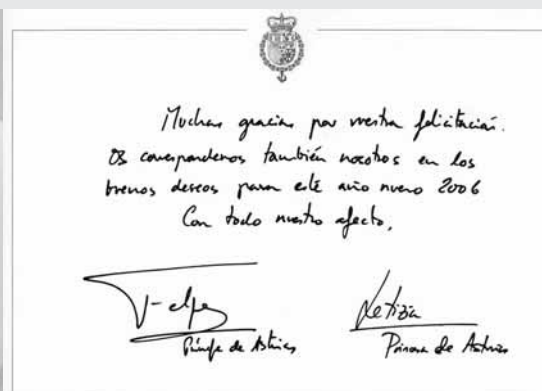 Muchas gracias por vuestra felicitación.
Os correspondemos también nosotros en los
buenos deseos para este año nuevo 2006
Con todo nuestro afecto,
Felipe Letizia
Príncipe de Asturias Princesa de Asturias